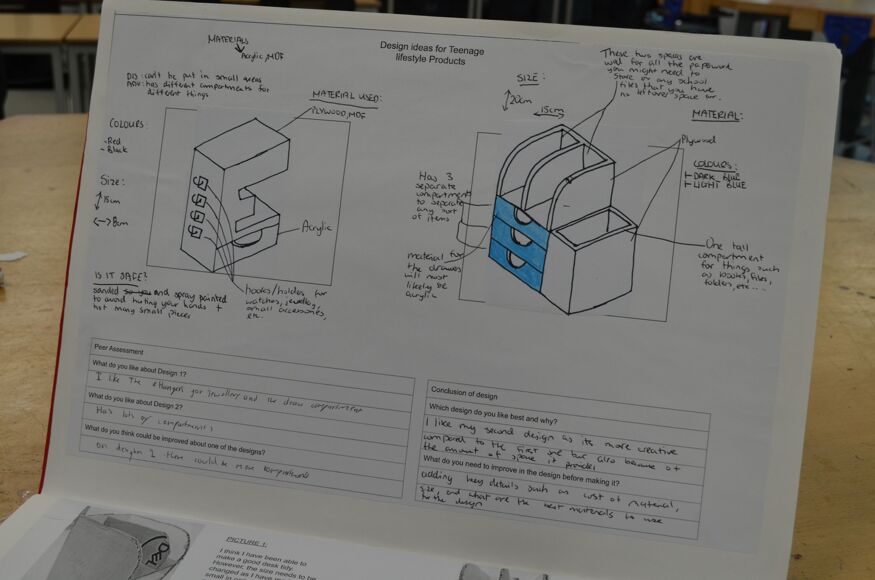 Design ideas for Teenage
lifestyle Products
MATERIALS
Acrylic, MDF
DIS: can't be put in small areas
ADV: has different compartments for
different things
MATERIAL USED:
PLYWOOD, MDF
COLOURS:
-Red
-Black
SIZE:
15cm
8cm
Acrylic
IS IT SAFE?
sanded and spray painted
to avoid hurting your hands +
not many small pieces
hooks/holders for
watches, jewellery,
small accessories,
etc.
SIZE:
20cm
15cm
These two spaces are
well for all the paperwork
you might need to
store or any school
files that you have
no leftover space for.
MATERIAL:
Plywood
COLOURS:
DARK BLUE
LIGHT BLUE
Has 3
separate
compartments
to separate
any sort
of items
material for
the drawers
will most
likely be
acrylic
One tall
compartment
for things such
as books, files,
folders, etc....
Peer Assessment
What do you like about Design 1?
I like The Hangers for jewellery and the draw compartment
What do you like about Design 2?
Has lots of compartments
What do you think could be improved about one of the designs?
on design 1 there could be more compartments
Conclusion of design
Which design do you like best and why?
I like my second design as its more creative
compared to the first one but also because of
the amount of space it provides
What do you need to improve in the design before making it?
adding key details such as cost of material,
size, and what are the best materials to use
for the design
PICTURE 1:
I think I have been able to
make a good desk tidy.
However, the size needs to be
changed as I have
small in